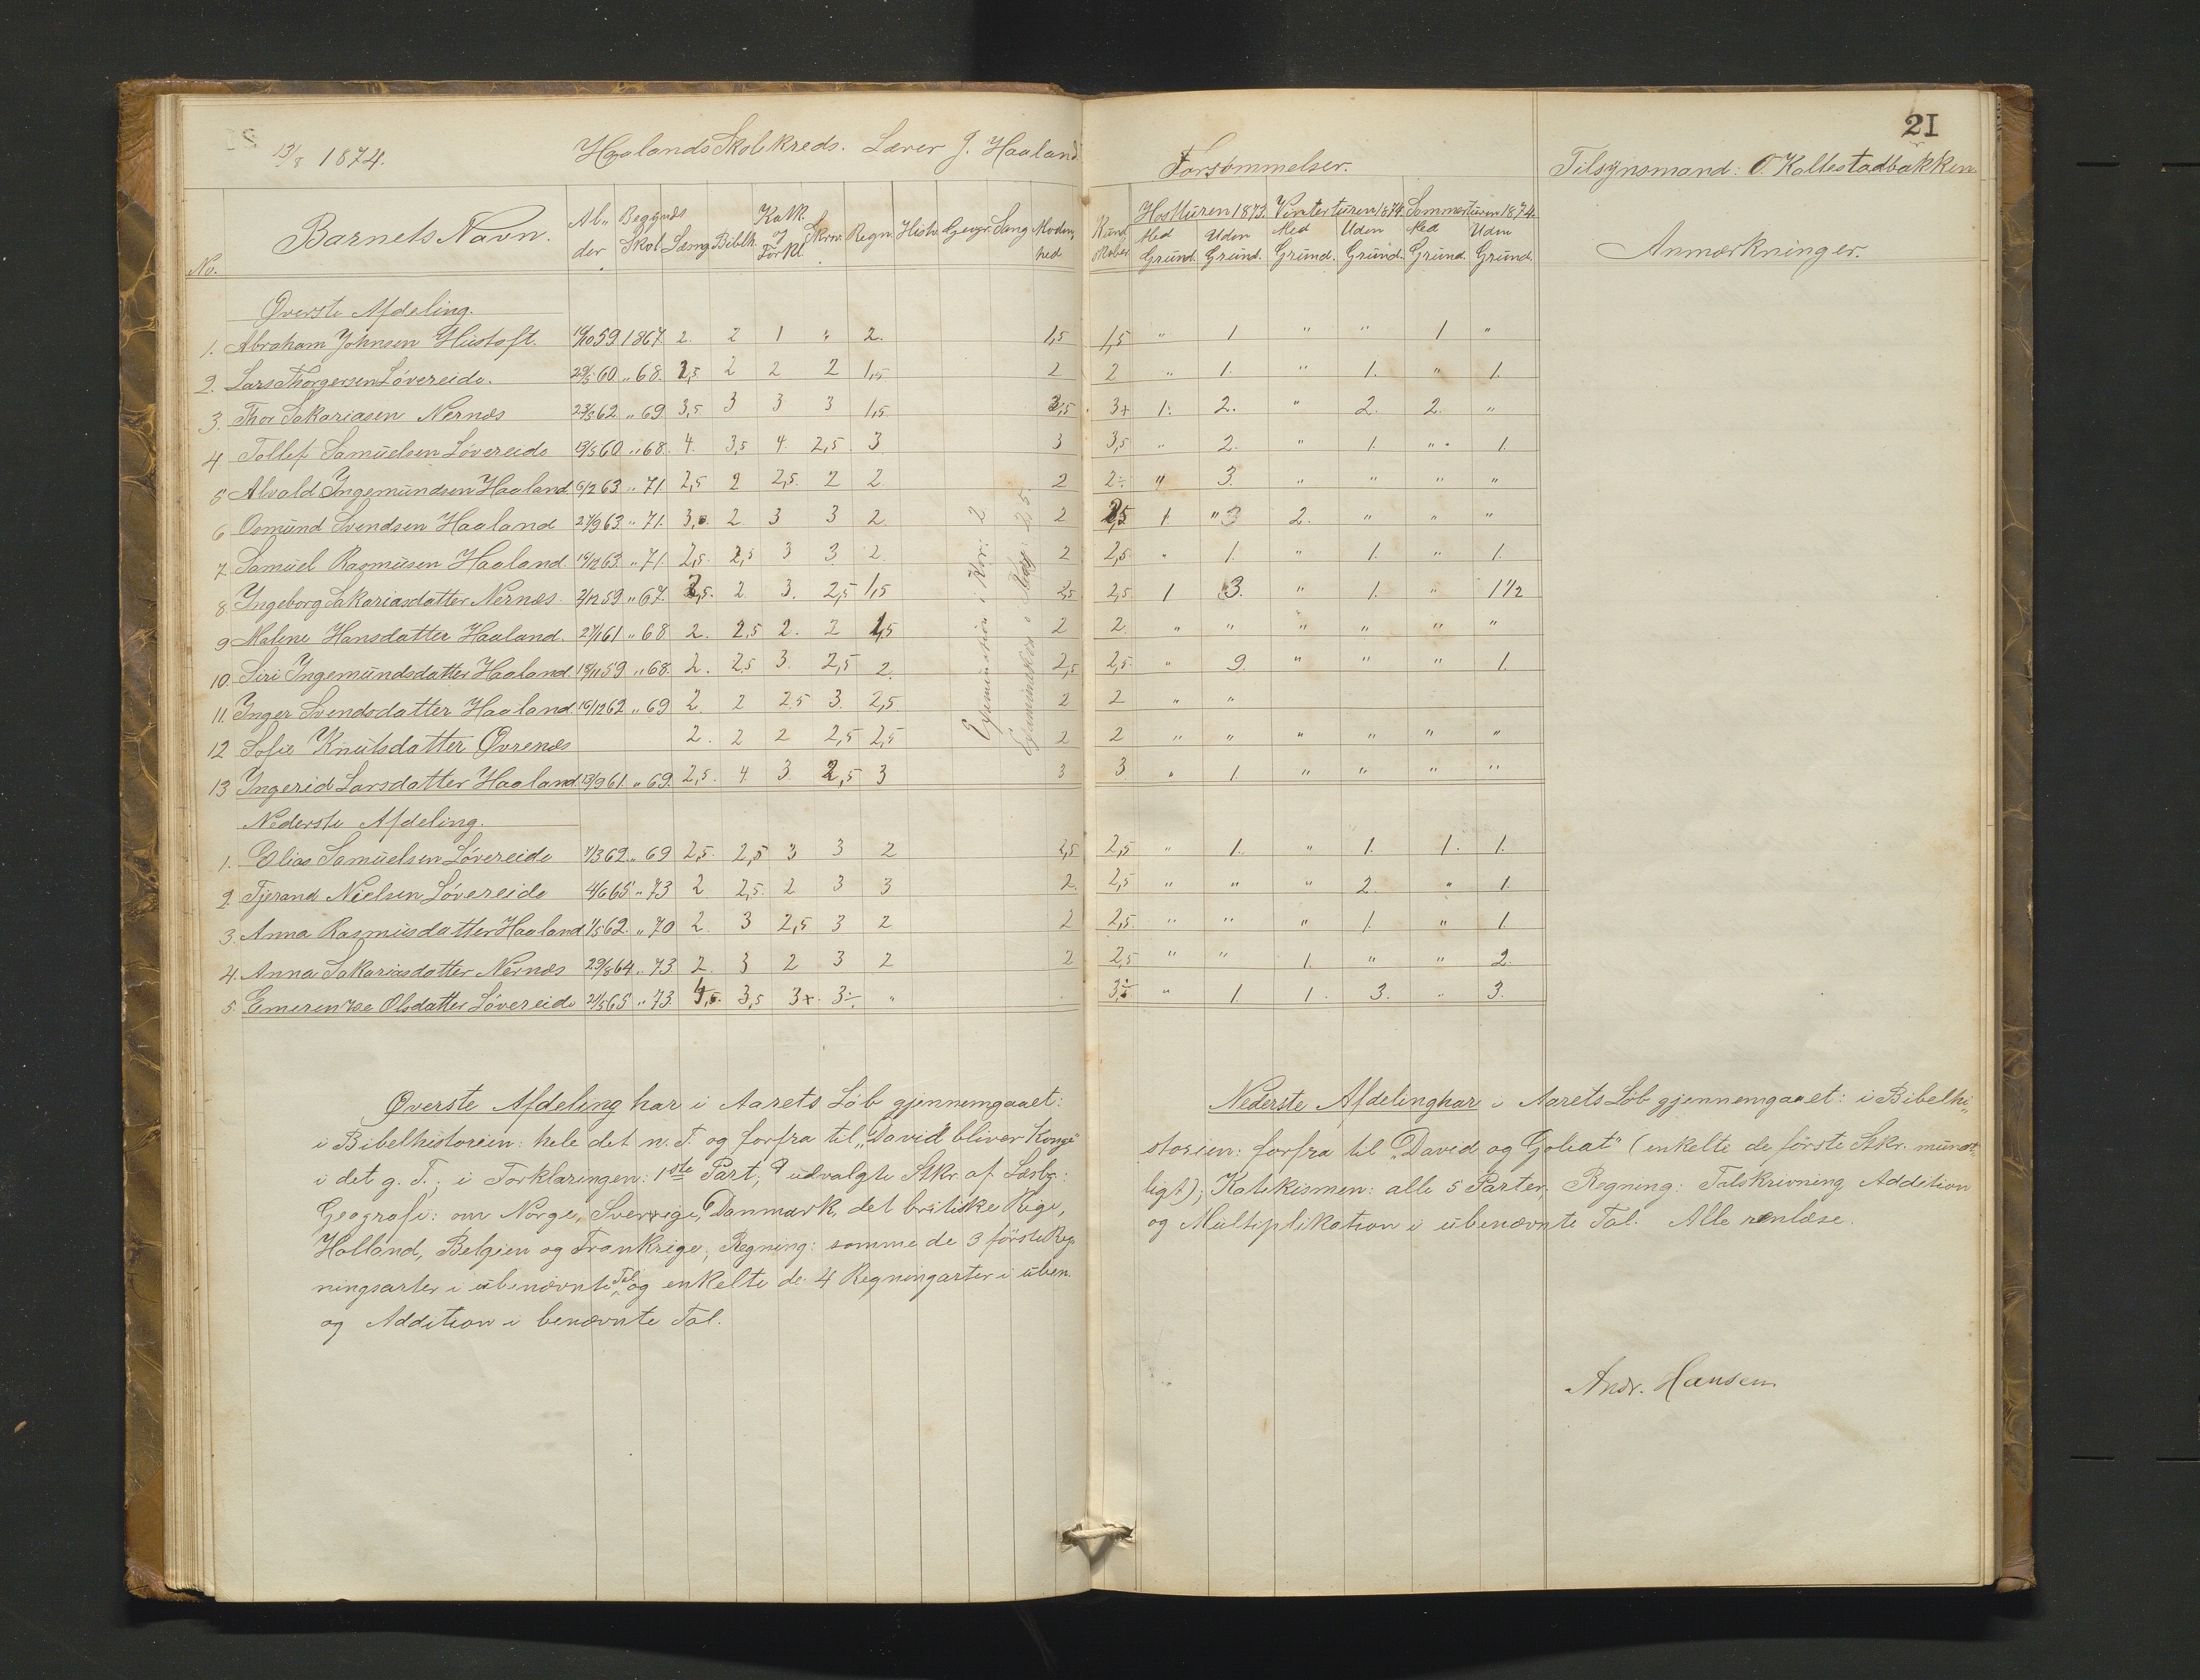 13/8 1874. Haalands Skolekreds. Lærer J. Haaland
No. Barnets Navn. Al„der Begyndt Skol. Læsng Biblh. Katk. og Forkl. Skriv. Regn. Histo. Geogr. Sang Modenhed
Øverste Afdeling.
1. Abraham Johnsen Hustoft. 19/10 59 1867. 2. 2 1 " 2. 1,5
2. Lars Thorgersen Lövereide. 29/5 60 " 68. 2,5 2 2 2 1,5 2
3. Thor Sakariasen Nernæs 23/3 62 " 69 3,5 3 3 3 1,5 2,5
4 Tollef Samuelsen Lövereide 13/5 60 " 68. 4. 3,5 4. 2,5 3 3
5 Alvald Ingemundsen Haaland 6/2 63 " 71. 2,5 2 2,5. 2 2 2
6 Osmund Svendsen Haaland 27/9 63 " 71. 3,0. 2. 3 3 2 2
7. Samuel Rasmusen Haaland 19/12 63. " 71 2,5. 2,5 3 3 2. 2
8. Ingeborg Sakariasdatter Nernæs. 2/12 59 " 67. 2,5. 2 3. 2,5 1,5 2,5
9 Malene Hansdatter Haaland. 27/1 61 " 68 2. 2,5 2. 2 1,5 2
10. Siri Ingemundsdatter Haaland 18/11 59 " 68. 2. 2,5 3. 2,5 2. 2,5
11. Inger Svendsdatter Haaland. 19/12 62 " 69 2. 2 2,5 3. 2,5 2
12 Sofie Knutsdatter Øvrenæs 2. 2 2 2,5 2,5 2
13 Ingerid Larsdatter Haaland. 13/9 61. " 69. 2,5. 4 3. 2,5 3 3
Nederste Afdeling.
1. Elias Samuelsen Lövereide 7/3 62. " 69 2,5. 2,5 3 3 2 2,5
2. Tjerand Nielsen Lövereide 4/6 65 " 73 2 2,5. 2 3 3 2.
3. Anna Rasmusdatter Haaland 1/5 62. " 70 2. 3 2,5 3 2 2
4. Anna Sakariasdatter Nernæs 29/8 64. " 73 2. 3 2 3 2 2
5. Emerentze Olsdatter Lövereide 21/5 65 " 73. 4,5. 3,5 3+. 3÷. "
Examination i Kor: 2
Øverste Afdeling har i Aarets Löb gjennemgaaet:
i Bibelhistorien: hele det n. T. og forfra til „David bliver Konge"
i det g. T.; i Forklaringen: 1ste Part; 9 udvalgte Stkr. af Læsbg.:
Geografi: om Norge, Sverrige, Danmark, det britiske Rige,
Holland, Belgien og Frankrige; Regning: somme de 3 förste Reg„
ningsarter i ubenævnte Tal og enkelte de 4 Regningarter i uben.
og Addition i benævnte Tal.
21
Forsømmelser. Tilsynsmand: O. Kallestadbakken
Kundskaber Høstturen 1873. Vinterturen 1874. Sommerturen 1874.
Med Grund. Uden Grund. Med Grund. Uden Grund. Med Grund. Uden Grund. Anmærkninger.
1,5 " 1 " " 1 "
2 " 1. " 1. " 1.
3+ 1. 2. " 2. 2. "
3,5 " 2. " 1. " 1.
2÷ " 3. " " " "
2,5 1. " 3 2. " " "
2,5 " 1. " 1. " 1.
2,5 1 3. " 1. " 1 1/2
2. " " " " " "
2,5. " 9. " " " 1.
2 " "
2 " " " " " "
3 " 1. " " " "
2,5 " 1. " 1. 1. 1.
2,5 " " " 2. " 1.
2,5. " " " 1. " 1.
2,5 " " 1. " " 2.
3÷ " 1. 1. 3. " 3.
Nederste Afdeling har i Aarets Löb gjennemgaaet: i Bibelhi„
storien: forfra til „David og Goliat" (enkelte de förste Stkr. mundt„
ligt); Katekismen: alle 5 Parter; Regning: Talskrivning Addition
og Multiplikation i ubenævnte Tal. Alle renlæse.
Andr. Hansen.